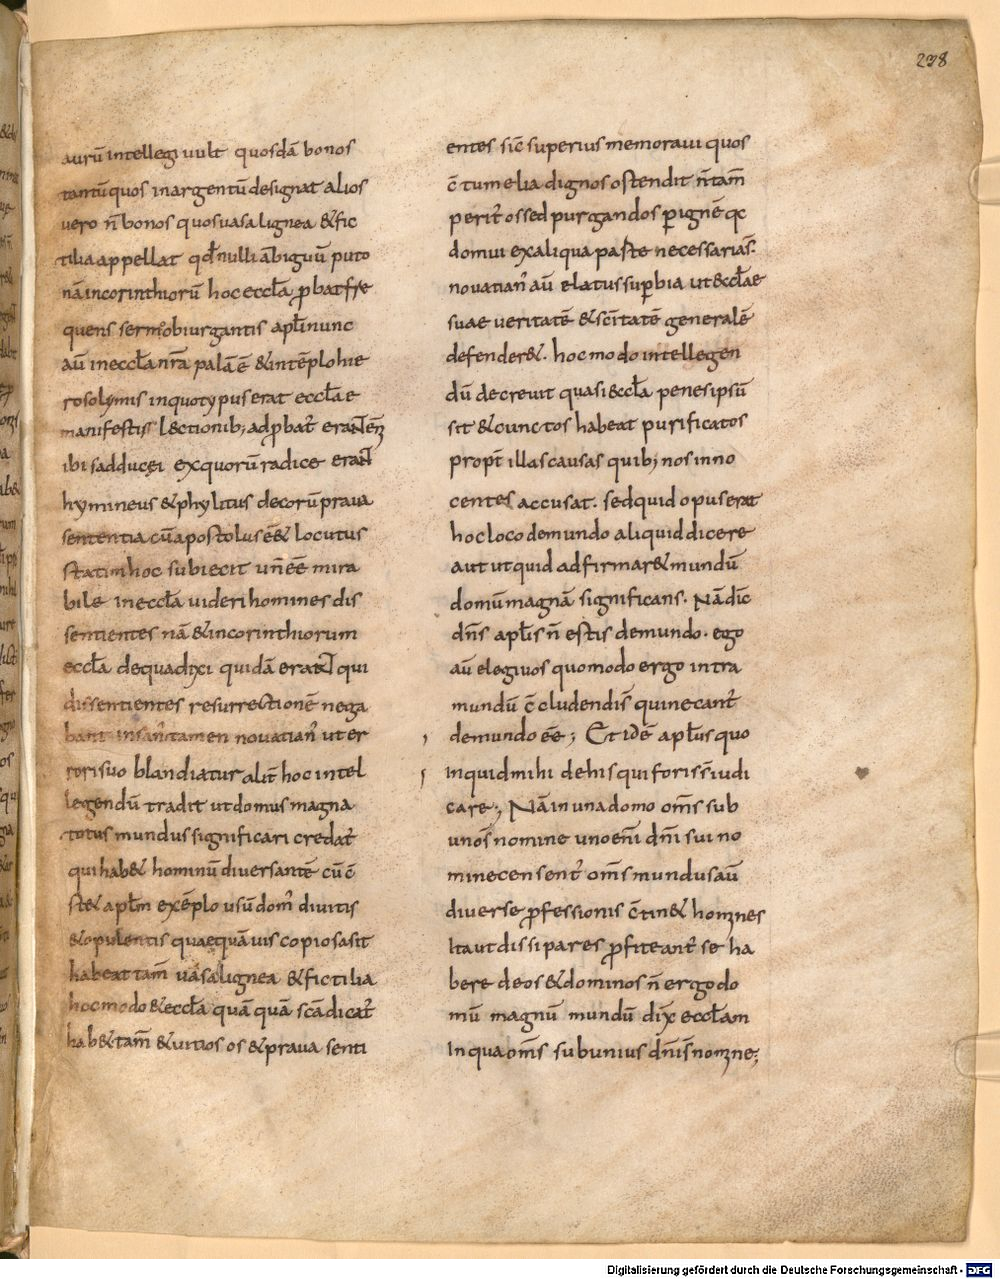 238
aurū intellegi uult quosdā bonos
tantū quos in argentū designat alios
uero n̄ bonos quos uasa lignea & fic
tilia appellat qd̄ nulli ābiguū puto
nā in corinthiorū hoc eccl̄a ꝓbat fre
quens sermo obiurgantis apl̄i nunc
aū in eccl̄a nr̄a palā ē & in tēplo hie
rosolymis in quo typus erat eccl̄ae
manifestis lectionib; adꝓbat̄ erant eni
ibi sadducęi ex quorū radice erant
hymineus & phylitus de corū praua
sententia cū apostolus ēē& locutus
statim hoc subiecit un̄ ēē mira
bile in eccl̄a uideri homines dis
sentientes nā & in corinthiorum
eccl̄a de qua dixi quidā erant qui
dissentientes resurrectionē nega
bant insan̄ tamen nouatian̄ ut er
rori suo blandiatur alit̄ hoc intel
legendū tradit ut domus magna
totus mundus significari credat̄
qui hab& hominū diuersantē cū c̄
st& apl̄m exēplo usū dom̄ diuitis
& opulentis quae quāuis copiosa sit
habeat tam̄ uasa lignea & fictilia
hoc modo & eccl̄a quā quā scā dicat̄
hab& tam̄ & uitiosos & praua senti
entes sic̄ superius memoraui quos
c̄tumelia dignos ostendit n̄ tam̄
perit̄os sed purgandos p̱ ignē qc
domui ex aliqua parte necessarias̄.
nouatian̄ aū elatus sup̱bia ut &ccl̄ae
suae ueritatē & sc̄itatē generalē
defender&. hoc modo intellegen
dū decreuit quasi &ccl̄a penes ipsū
sit & cunctos habeat purificatos
propt̄ illas causas quib; nos inno
centes accusat. sed quid opus erat
hoc loco de mundo aliquid dicere
aut ut quid adfirmar& mundū
domū magnā significans. Nā dic̄
dn̄s apl̄is n̄ estis de mundo. ego
aū elegi uos quomodo ergo intra
mundū c̄cludendi s̄ qui necant̄
de mundo ēē; Et idē apl̄us quo
inquid mihi de his qui foris s̄ iudi
care; Nā in una domo om̄s sub
unos̄ nomine uno eni dn̄i sui no
mine censent̄ om̄s mundus aū
diuerse ꝓfessionis c̄tin& homines
Ita ut dissipares ꝓfiteant̄ se ha
bere deos & dominos n̄ ergo do
mū magnū mundū dix̄ eccl̄am
In qua om̄s sub unius dn̄i s̄ nomine;
Digitalisierung gefördert durch die Deutsche Forschungsgemeinschaft - DFG